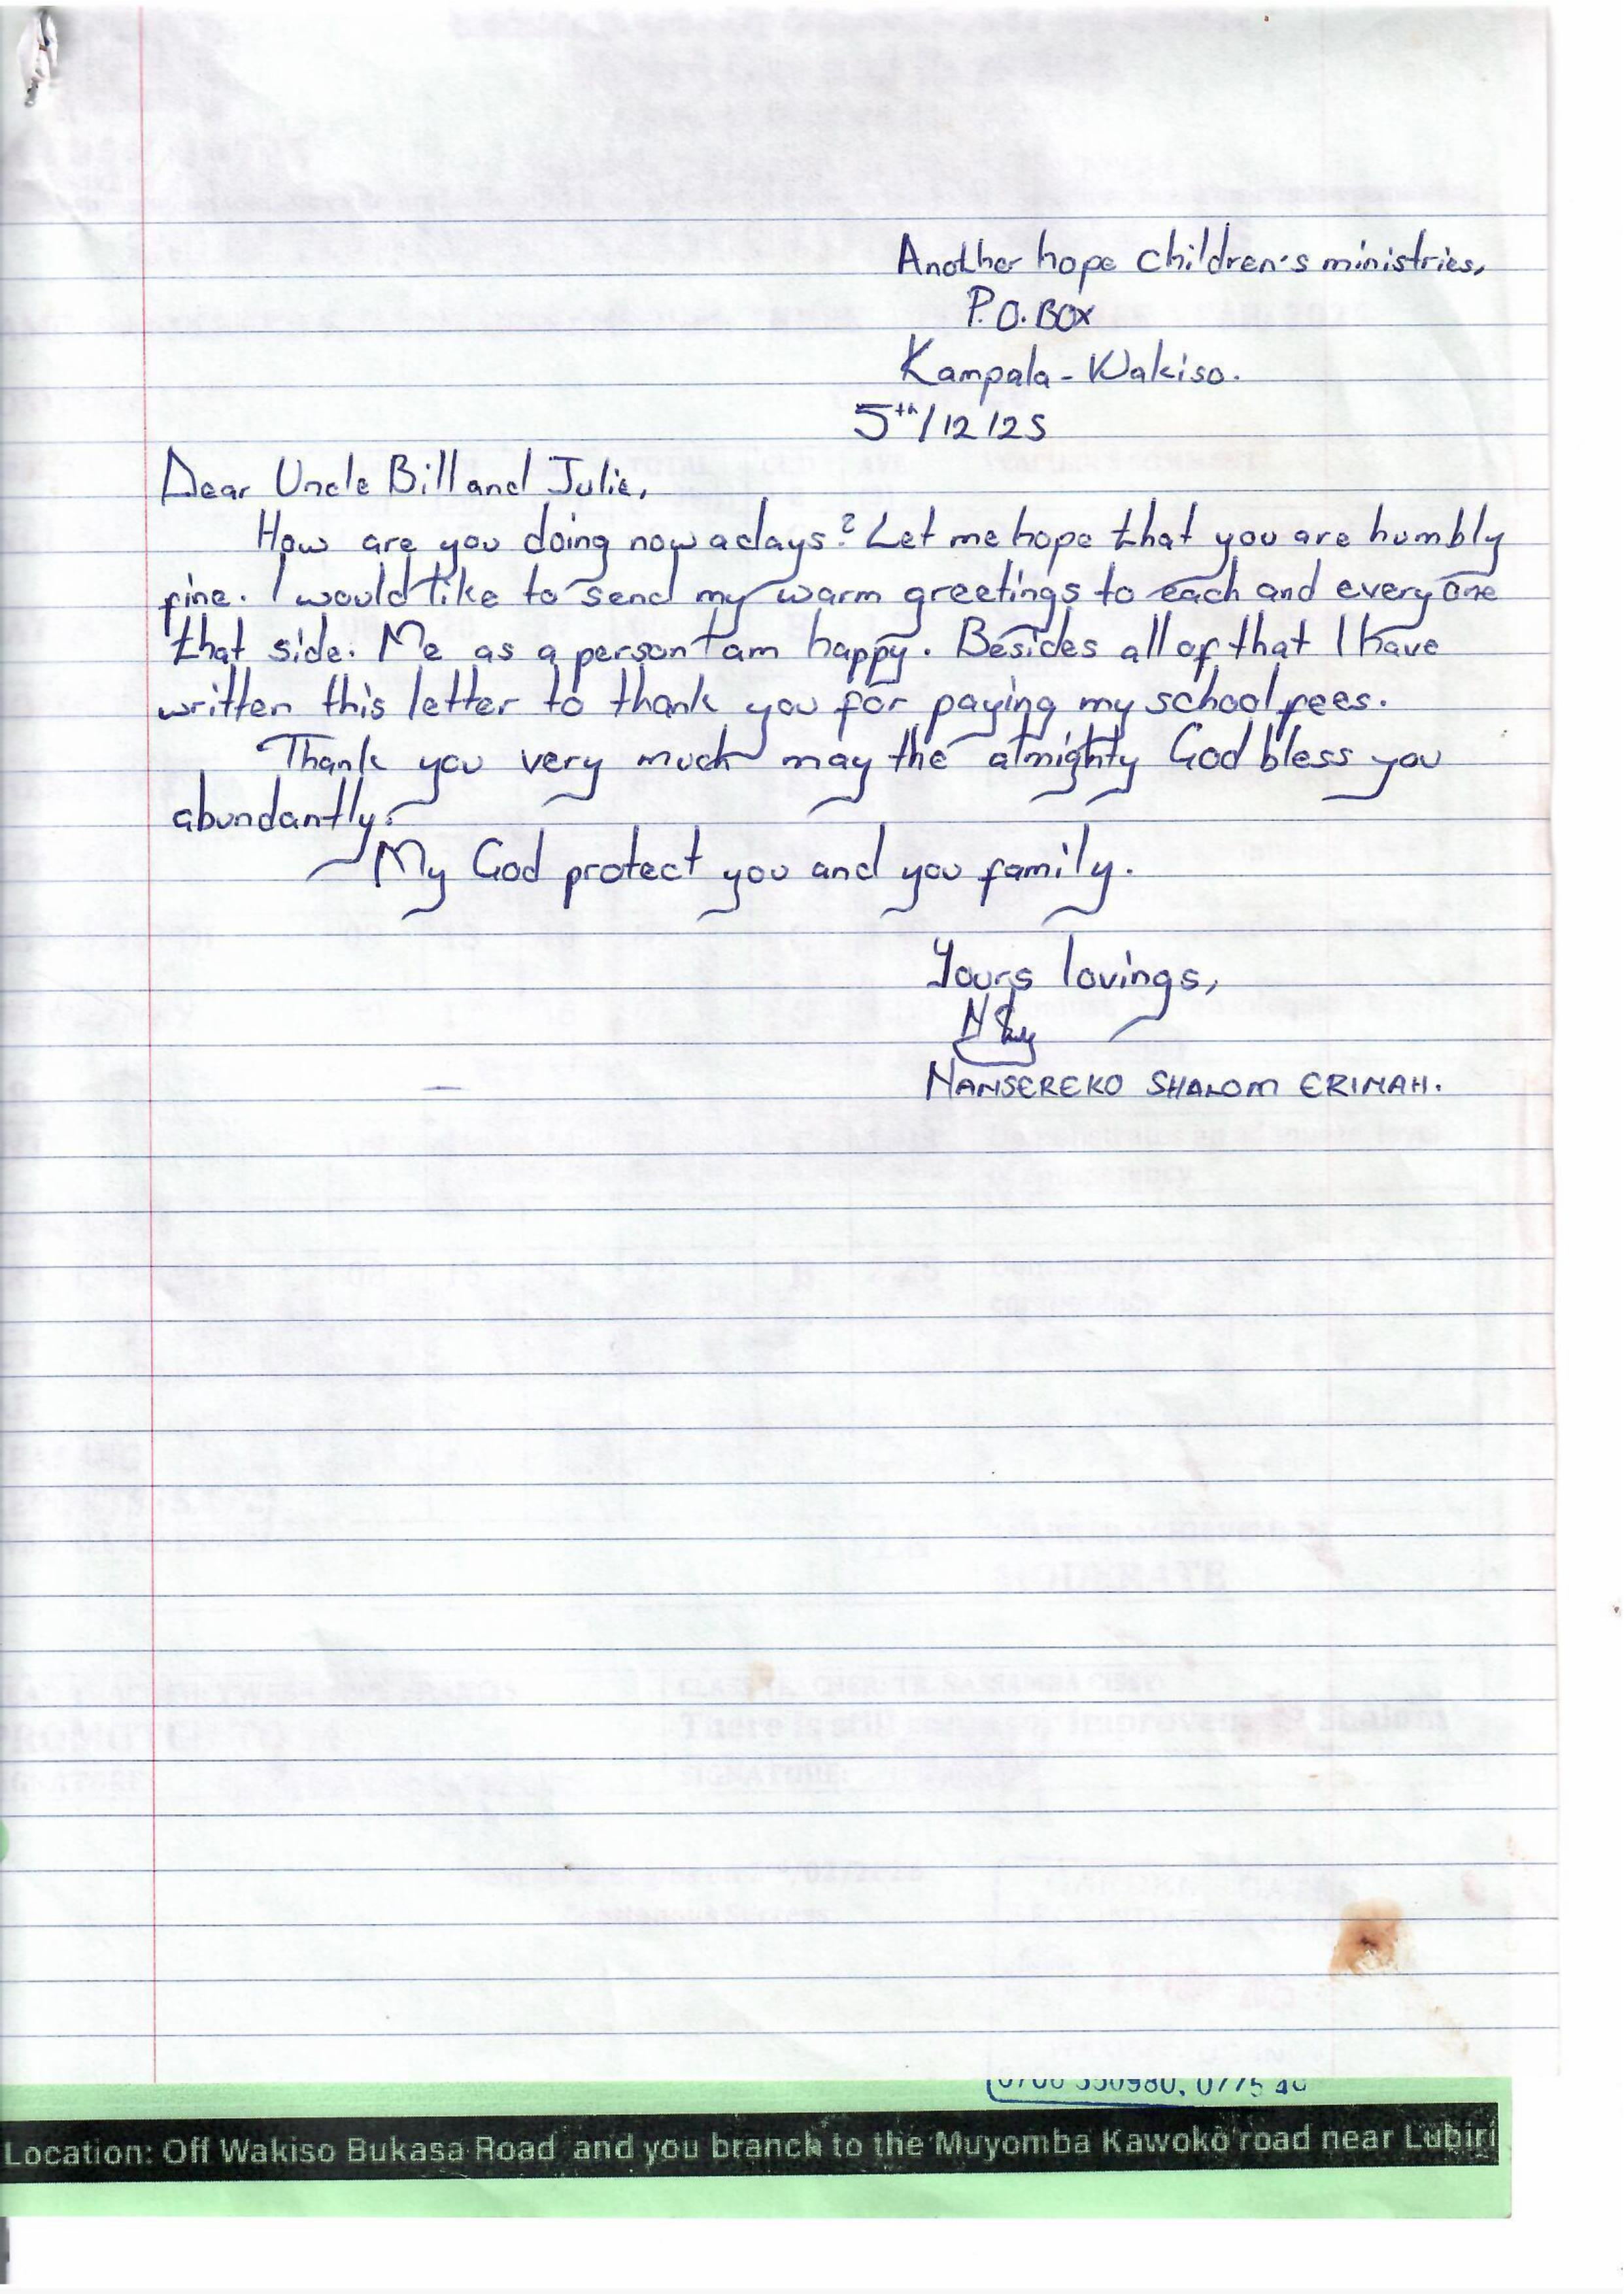 Another hope children's ministries,
P.O. BOX
Kampala - Wakiso.
5th/12/25
Dear Uncle Bill and Julie,
How are you doing now adays? Let me hope that you are humbly
fine. I would like to send my warm greetings to each and every one
that side. Me as a person I am happy. Besides all of that I have
written this letter to thank you for paying my school fees.
Thank you very much may the almighty God bless you
abundantly.
My God protect you and you family.
Yours lovings,
NANSEREKO SHALOM ERINAH.
CLASS TEACHER: TR.
There is still
SIGNATURE:
Location: Off Wakiso Bukasa Road and you branch to the Muyomba Kawoko road near Lubiri